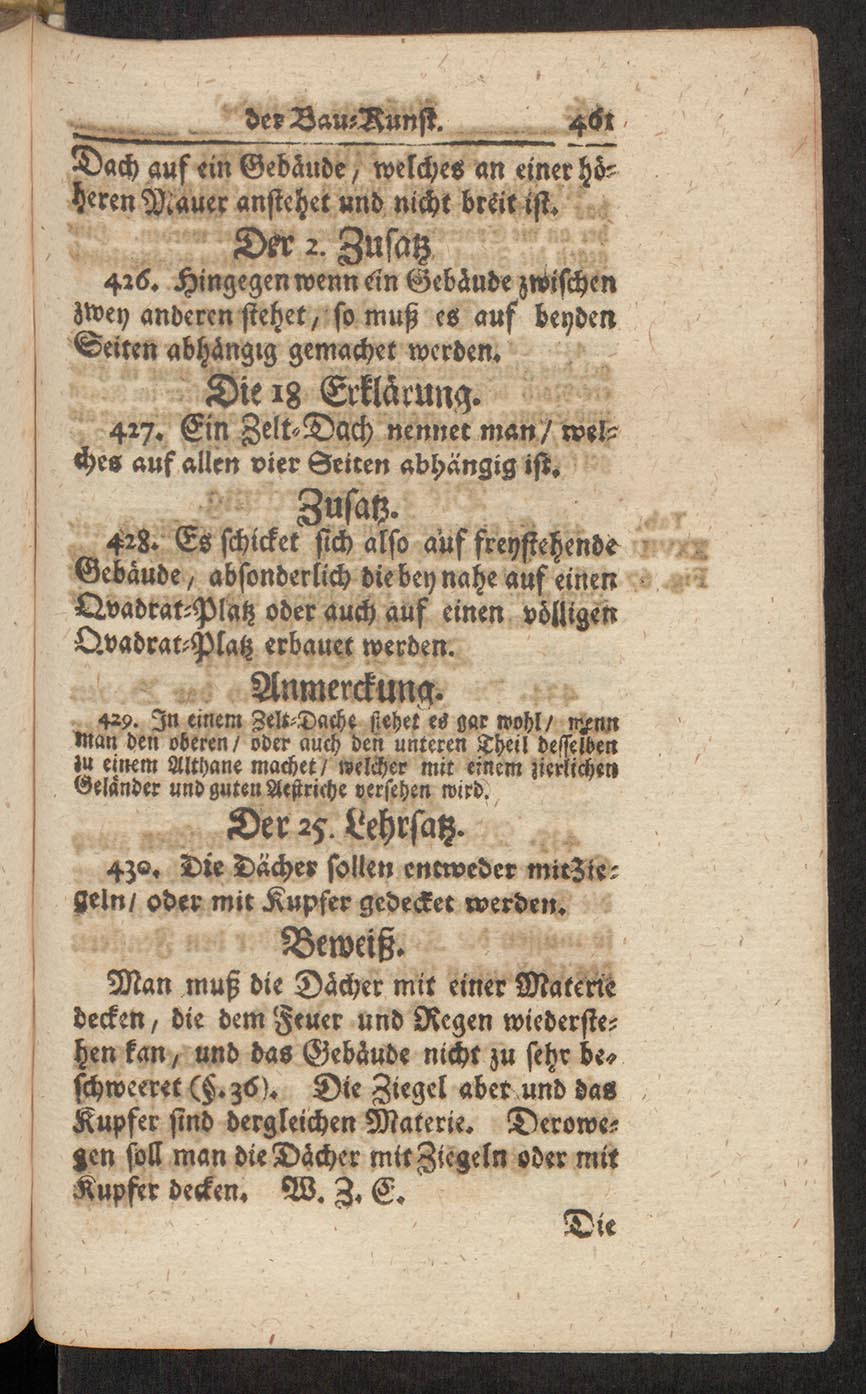 der Bau-Kunst. 461
Dach auf ein Gebäude, welches an einer hö-
heren Mauer anstehet und nicht breit ist.
Der 2. Zusatz
426. Hingegen wenn ein Gebäude zwischen
zwey anderen stehet, so muß es auf beyden
Seiten abhängig gemachet werden.
Die 18 Erklärung.
427. Ein Zelt-Dach nennet man/ wel-
ches auf allen vier Seiten abhängig ist.
Zusatz.
428. Es schicket sich also auf freystehende
Gebäude, absonderlich die bey nahe auf einen
Qvadrat-Platz oder auch auf einen völligen
Qvadrat-Platz erbauet werden.
Anmerckung.
429. In einem Zelt-Dache stehet es gar wohl/ wenn
man den oberen/ oder auch den unteren Theil desselben
zu einem Althane machet/ welcher mit einem zierlichen
Geländer und guten Aestriche versehen wird.
Der 25. Lehrsatz.
430. Die Dächer sollen entweder mit Zie-
geln/ oder mit Kupfer gedecket werden.
Beweiß.
Man muß die Dächer mit einer Materie
decken, die dem Feuer und Regen wiederste-
hen kan, und das Gebäude nicht zu sehr be-
schweeret (§. 36). Die Ziegel aber und das
Kupfer sind dergleichen Materie. Derowe-
gen soll man die Dächer mit Ziegeln oder mit
Kupfer decken. W. Z. E.
Die